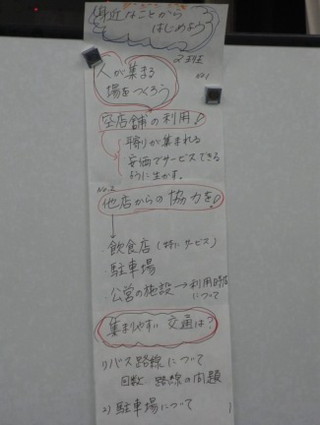 身近なことから
はじめよう
2班
人が集まる
場をつくろう
No.1
空店舗の利用♪
年寄りが集まれる
安価でサービスできる
ように生かす。
No.2
他店からの協力を♪
↓
飲食店(特にサービス)
・駐車場
・公営の施設→利用時間
について
集まりやすい交通は?
1)バス路線について
回数、路線の問題
2)駐車場について